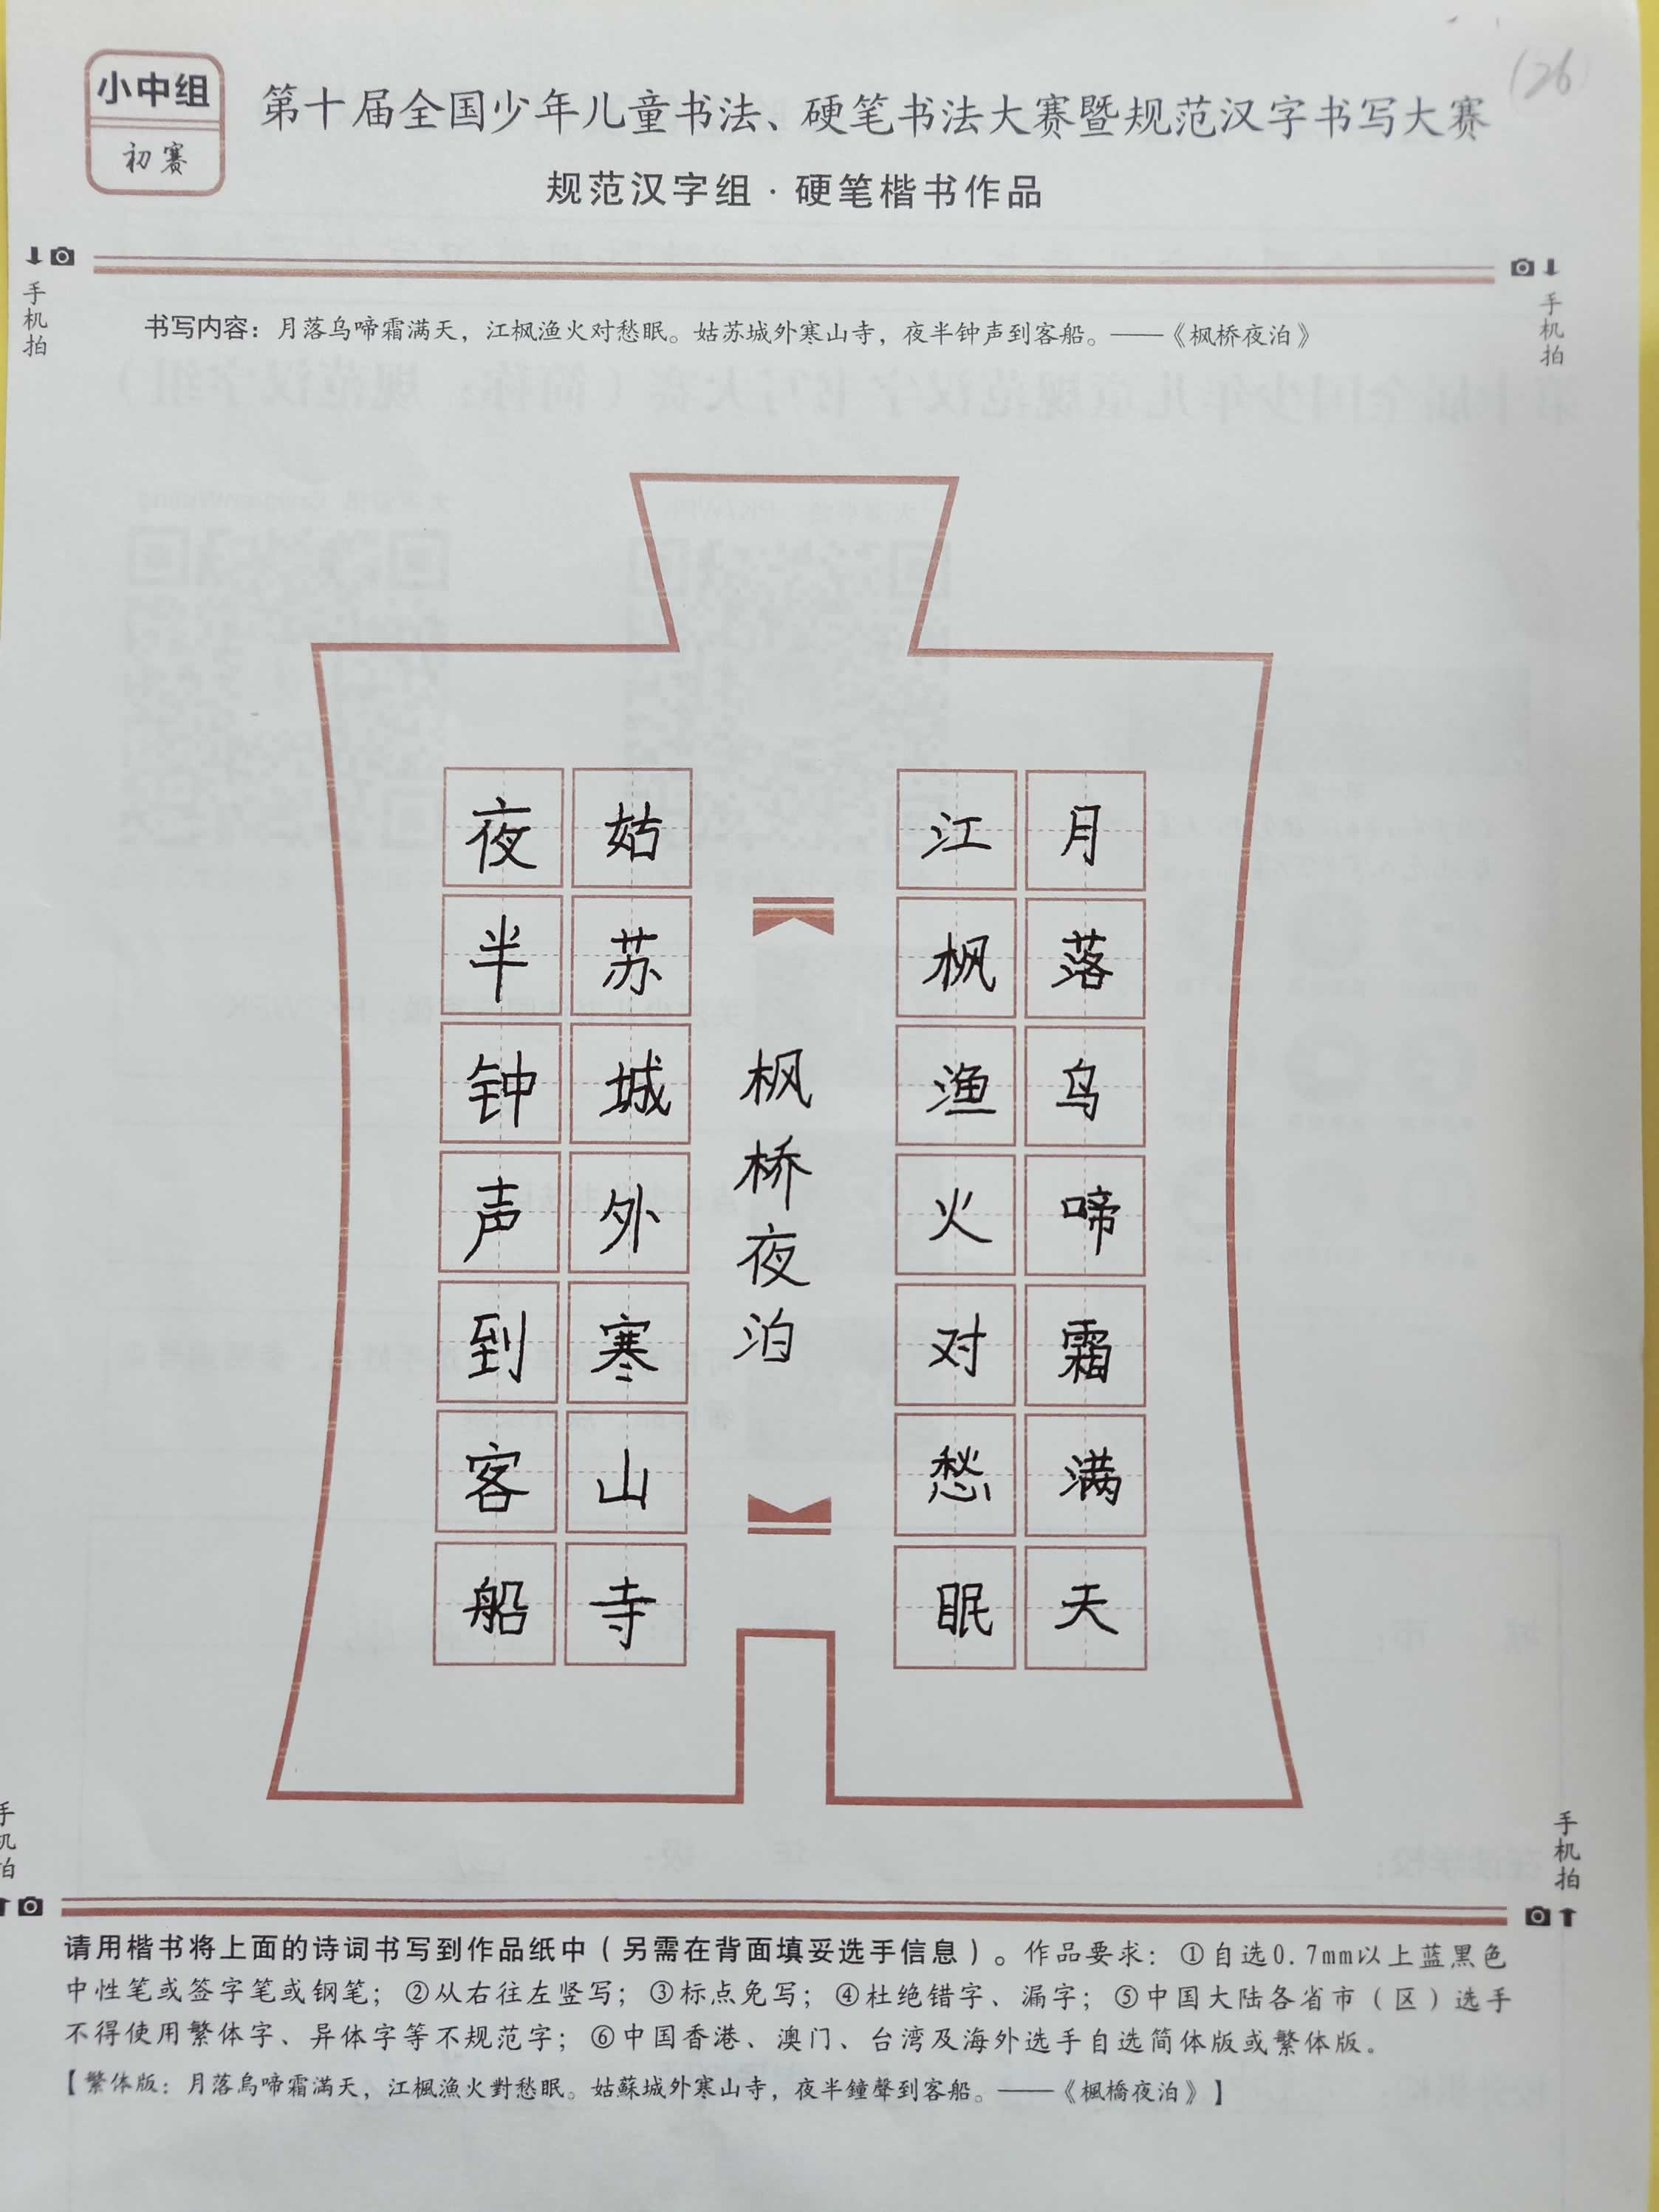 (26)
小中组
初赛
第十届全国少年儿童书法、硬笔书法大赛暨规范汉字书写大赛
规范汉字组·硬笔楷书作品
手机拍
手机拍
书写内容：月落乌啼霜满天，江枫渔火对愁眠。姑苏城外寒山寺，夜半钟声到客船。——《枫桥夜泊》
月落乌啼霜满天
江枫渔火对愁眠
枫桥夜泊
姑苏城外寒山寺
夜半钟声到客船
手机拍
手机拍
请用楷书将上面的诗词书写到作品纸中（另需在背面填妥选手信息）。作品要求：①自选0.7mm以上蓝黑色
中性笔或签字笔或钢笔；②从右往左竖写；③标点免写；④杜绝错字、漏字；⑤中国大陆各省市（区）选手
不得使用繁体字、异体字等不规范字；⑥中国香港、澳门、台湾及海外选手自选简体版或繁体版。
【繁体版：月落烏啼霜滿天，江楓漁火對愁眠。姑蘇城外寒山寺，夜半鐘聲到客船。——《楓橋夜泊》】